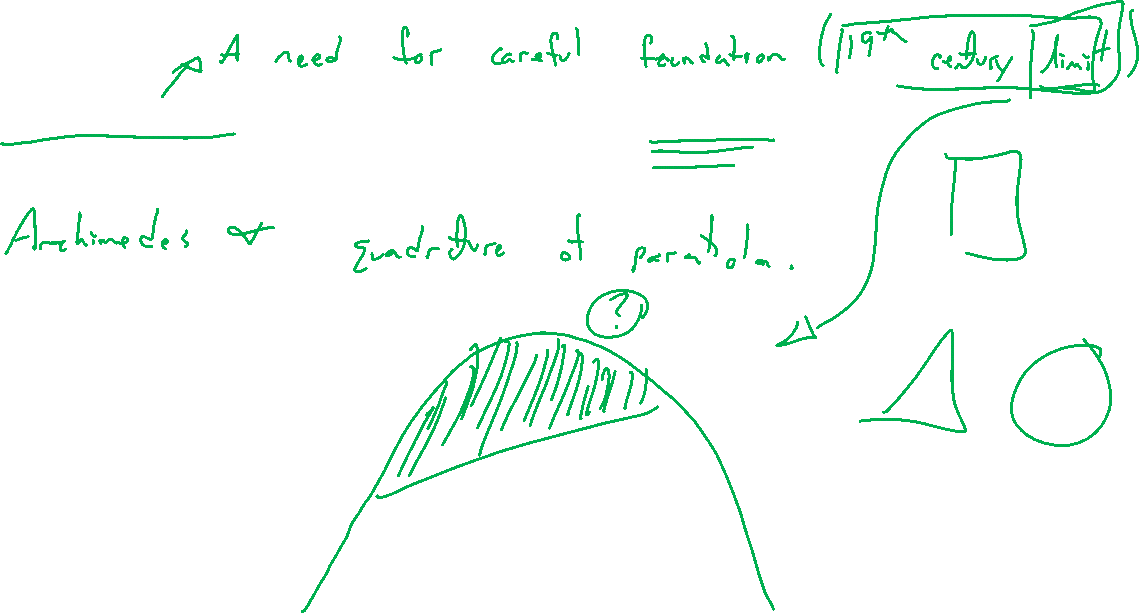 A need for careful foundation (19th century limit)
Archimedes quadrature of parabola.
?